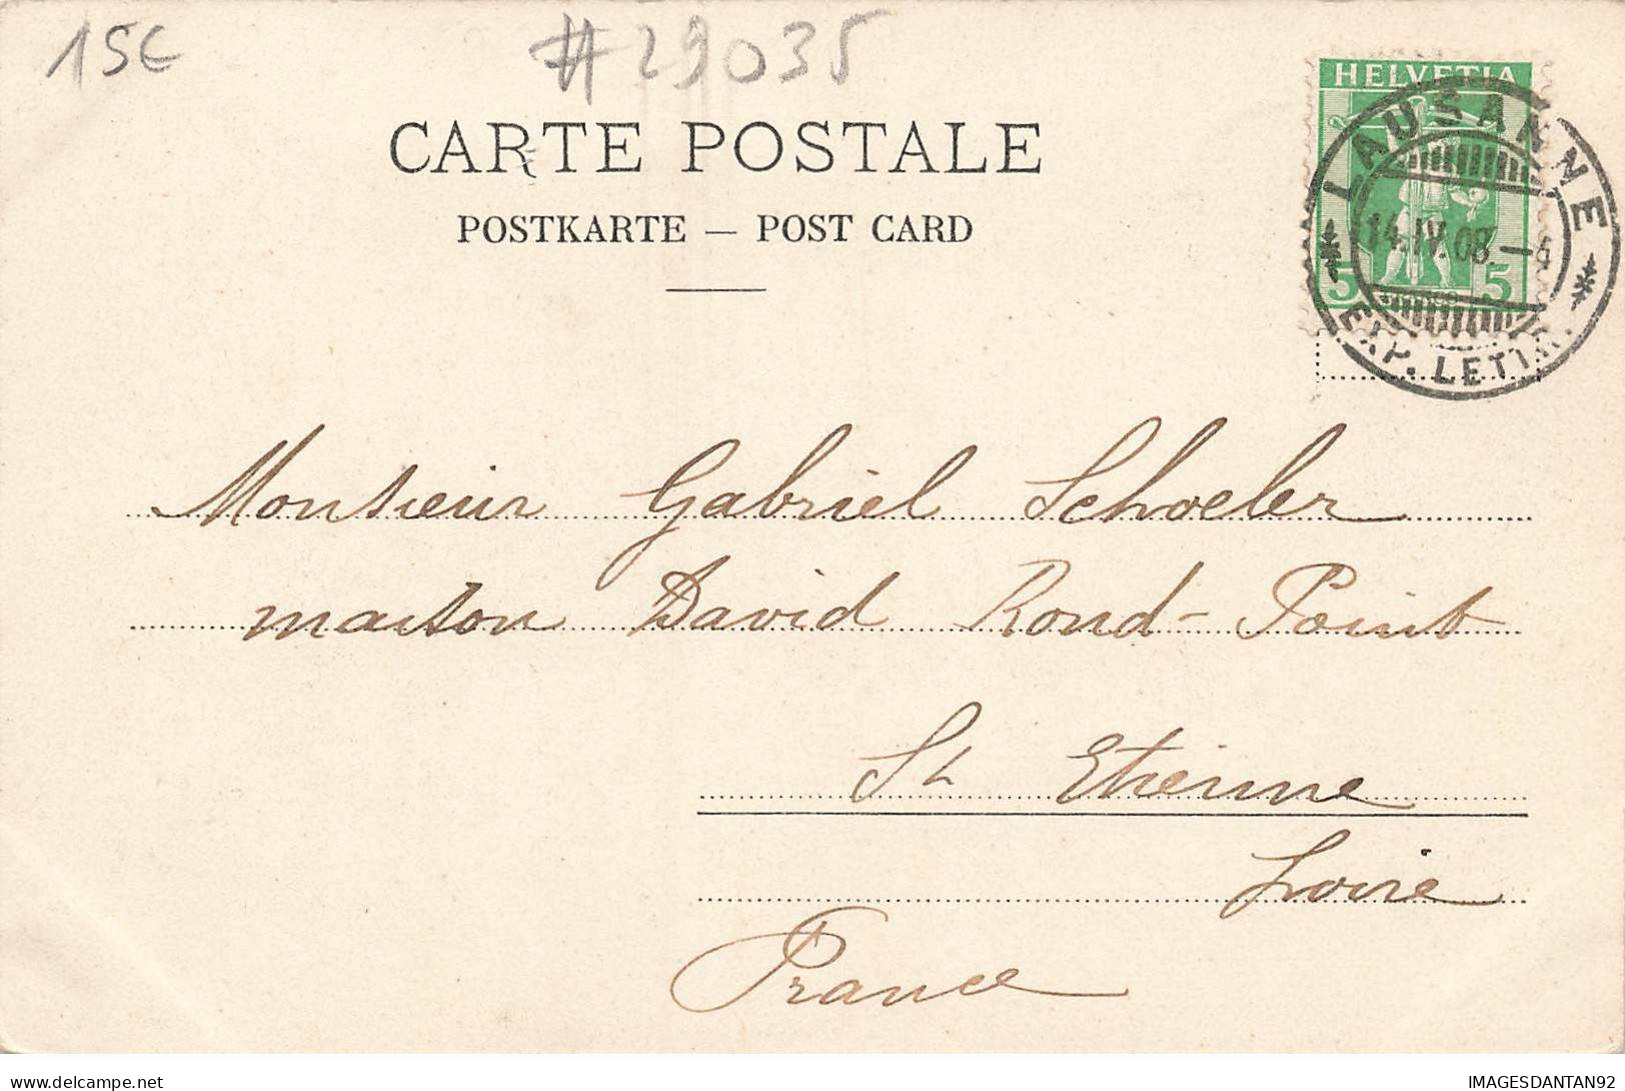 15€
#29035
CARTE POSTALE
POSTKARTE — POST CARD
HELVETIA
5 5
LAUSANNE
14.IV.08.
EXP. LETTR.
Monsieur Gabriel Schoeler
maison David Rond-Point
St Etienne
Loire
France
delcampe.net
IMAGESDANTAN92